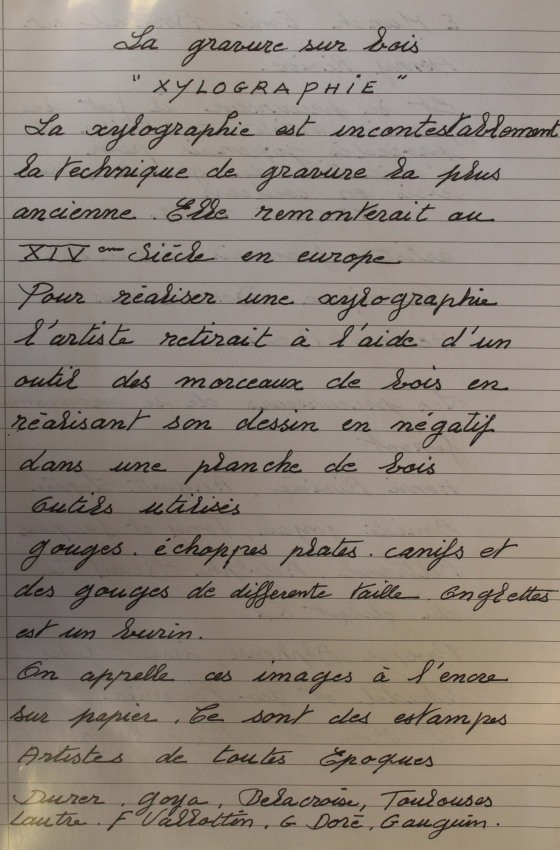 La gravure sur bois
"XYLOGRAPHIE"
La xylographie est incontestablement
la technique de gravure la plus
ancienne. Elle remonterait au
XIV eme Siècle en europe
Pour réaliser une xylographie
l'artiste retirait à l'aide d'un
outil des morceaux de bois en
réalisant son dessin en négatif
dans une planche de bois
Outils utilisés
gouges. échoppes plates. canifs et
des gouges de differente taille Onglettes
est un burin.
On appelle ces images à l'encre
sur papier. Ce sont des estamps
Artistes de toutes Epoques
Durer. Goya, Delacroise, Toulouses
Lautre. F Vallottin. G Doré. Gauguin.